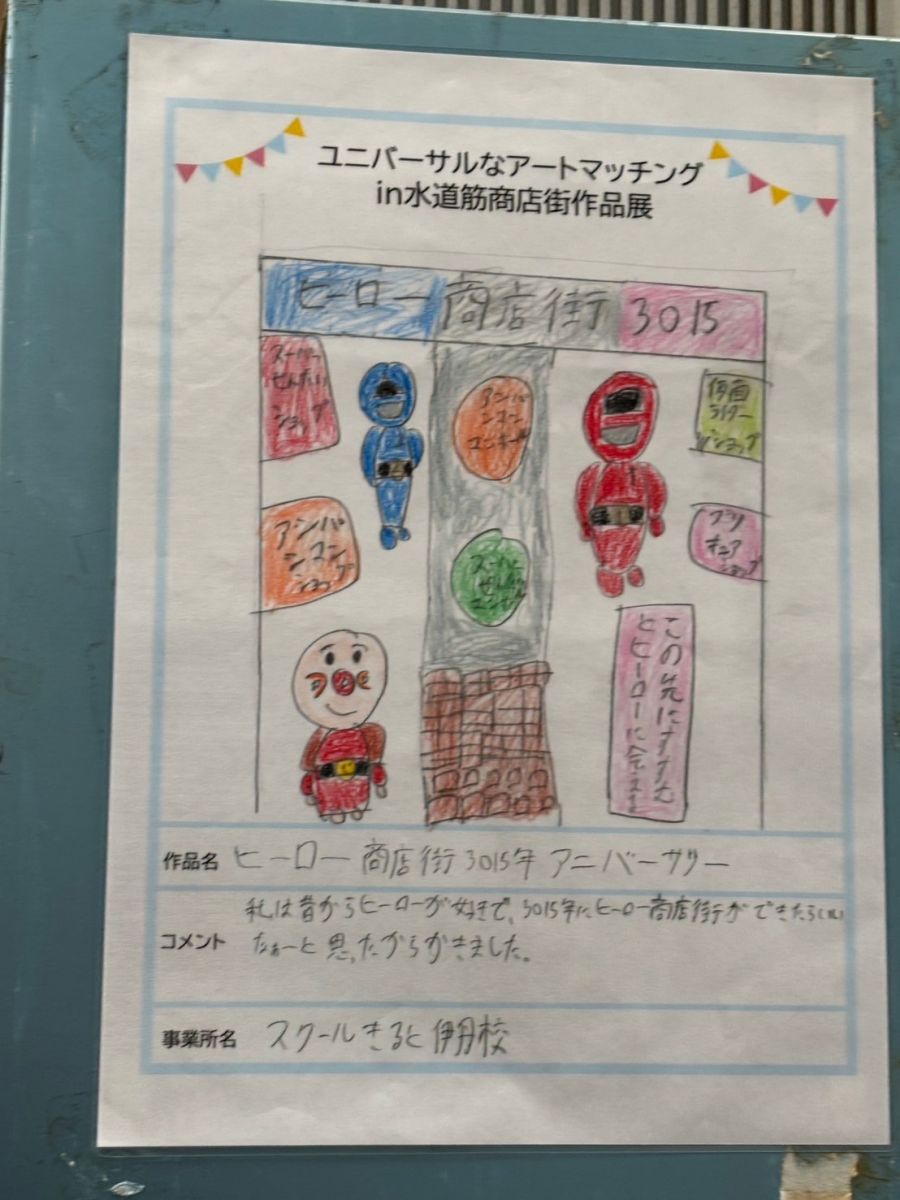 ユニバーサルなアートマッチング
in水道筋商店街作品展
ヒーロー商店街3015
スーパー
せんたい
ショップ
アンパ
ンマン
ショップ
アンパ
ンマン
スーパー
仮面
ライダー
ショップ
プリ
キュア
ショップ
この先にすすむ
とヒーローに会える
作品名 ヒーロー商店街3015年アニバーサリー
私は昔からヒーローが好きで、3015年にヒーロー商店街ができたらいい
コメント なぁーと思ったからかきました。
事業所名 スクールきると伊丹校